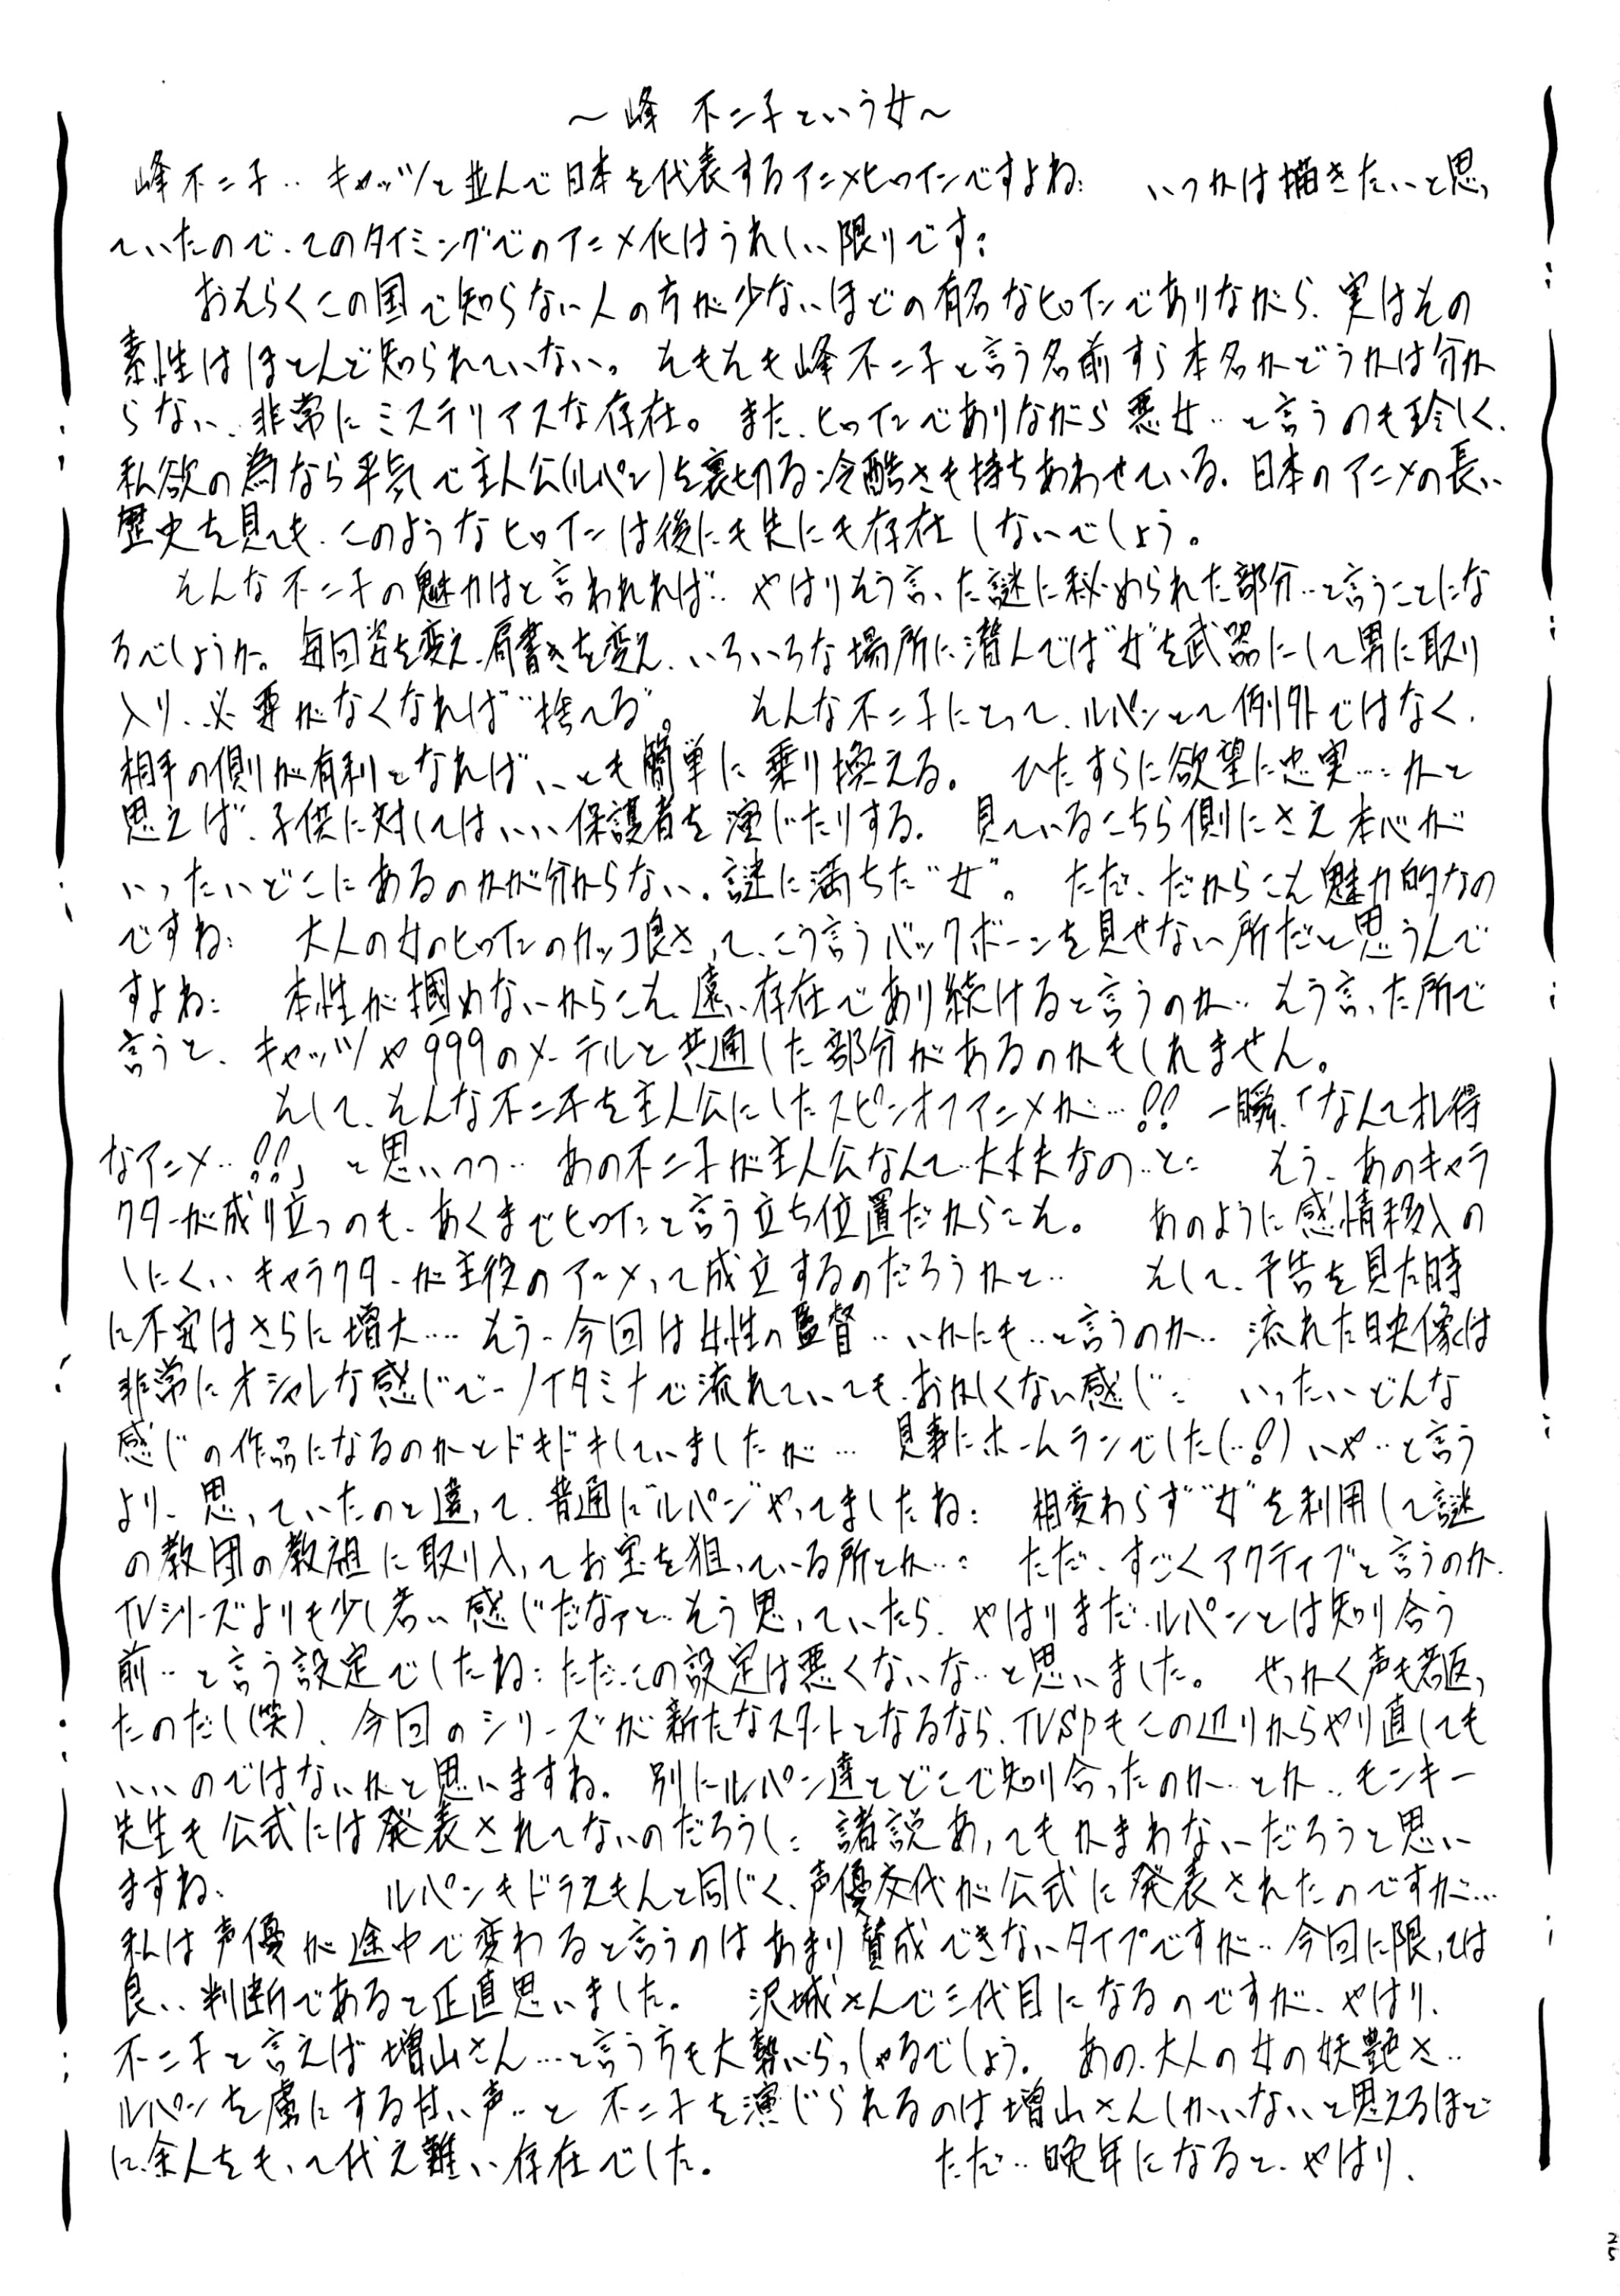 ～峰 不二子という女～
峰不二子‥キャッツと並んで日本を代表するアニメヒロインですよね: いつかは描きたいと思っ
ていたので、このタイミングでのアニメ化はうれしい限りです:
おそらくこの国で知らない人の方が少ないほどの有名なヒロインでありながら、実はその
素性はほとんど知られていない。そもそも峰不二子と言う名前すら本名かどうかは分か
らない、非常にミステリアスな存在。また、ヒロインでありながら悪女‥と言うのも珍しく、
私欲の為なら平気で主人公(ルパン)を裏切る冷酷さも持ちあわせている。日本のアニメの長い
歴史を見ても、このようなヒロインは後にも先にも存在しないでしょう。
そんな不二子の魅力はと言われれば‥やはりそう言った謎に秘められた部分‥と言うことにな
るでしょうか。毎回姿を変え、肩書きを変え、いろいろな場所に潜んでは“女”を武器にして男に取り
入り、必要がなくなれば“捨てる”。 そんな不二子にとって、ルパンとて例外ではなく、
相手の側が有利となれば、いとも簡単に乗り換える。 ひたすらに欲望に忠実…:かと
思えば、子供に対してはいい保護者を演じたりする。 見ているこちら側にさえ本心が
いったいどこにあるのかが分からない、謎に満ちた“女”。 ただ、だからこそ魅力的なの
ですね: 大人の女のヒロインのカッコ良さって、こう言うバックボーンを見せない所だと思うんで
すよね: 本性が掴めないからこそ、遠い存在であり続けると言うのか‥そう言った所で
言うと、キャッツや999のメーテルと共通した部分があるのかもしれません。
そして、そんな不二子を主人公にしたスピンオフアニメが…!! 一瞬、「なんてオレ得
なアニメ‥!!」と思いつつ‥あの不二子が主人公なんて‥大丈夫なの‥と: そう、あのキャラ
クターが成り立つのも、あくまでヒロインと言う立ち位置だからこそ。 あのように感情移入の
しにくいキャラクターが主役のアニメって成立するのだろうかと‥ そして、予告を見た時
に不安はさらに増大…. そう‥今回は女性の監督‥いかにも‥と言うのか‥流れた映像は
非常にオシャレな感じで‥ノイタミナで流れていても、おかしくない感じ: いったいどんな
感じの作品になるのかとドキドキしていましたが… 見事にホームランでした(‥!)いや‥と言う
より、思っていたのと違って、普通に“ルパン”やってましたね: 相変わらず“女”を利用して謎
の教団の教祖に取り入ってお宝を狙っている所とか…: ただ、すごくアクティブと言うのか、
TVシリーズよりも少し若い感じだなァと‥そう思っていたら、やはりまだルパンとは知り合う
前‥と言う設定でしたね:ただ、この設定は悪くないな‥と思いました。 せっかく声も若返っ
たのだし(笑)、今回のシリーズが新たなスタートとなるなら、TVSPもこの辺りからやり直しても
いいのではないかと思いますね。別にルパン達とどこで知り合ったのか‥とか‥モンキー
先生も公式には発表されてないのだろうし: 諸説あってもかまわないだろうと思い
ますね: ルパンもドラえもんと同じく、声優交代が公式に発表されたのですが…
私は声優が途中で変わると言うのはあまり賛成できないタイプですが‥今回に限っては
良い判断であると正直思いました。 沢城さんで三代目になるのですが、やはり、
不二子と言えば増山さん…と言う方も大勢いらっしゃるでしょう。 あの、大人の女の妖艶さ‥
ルパンを虜にする甘い声‥と不二子を演じられるのは増山さんしかいないと思えるほど
に、余人をもって代え難い存在でした。 ただ‥晩年になると、やはり、
25